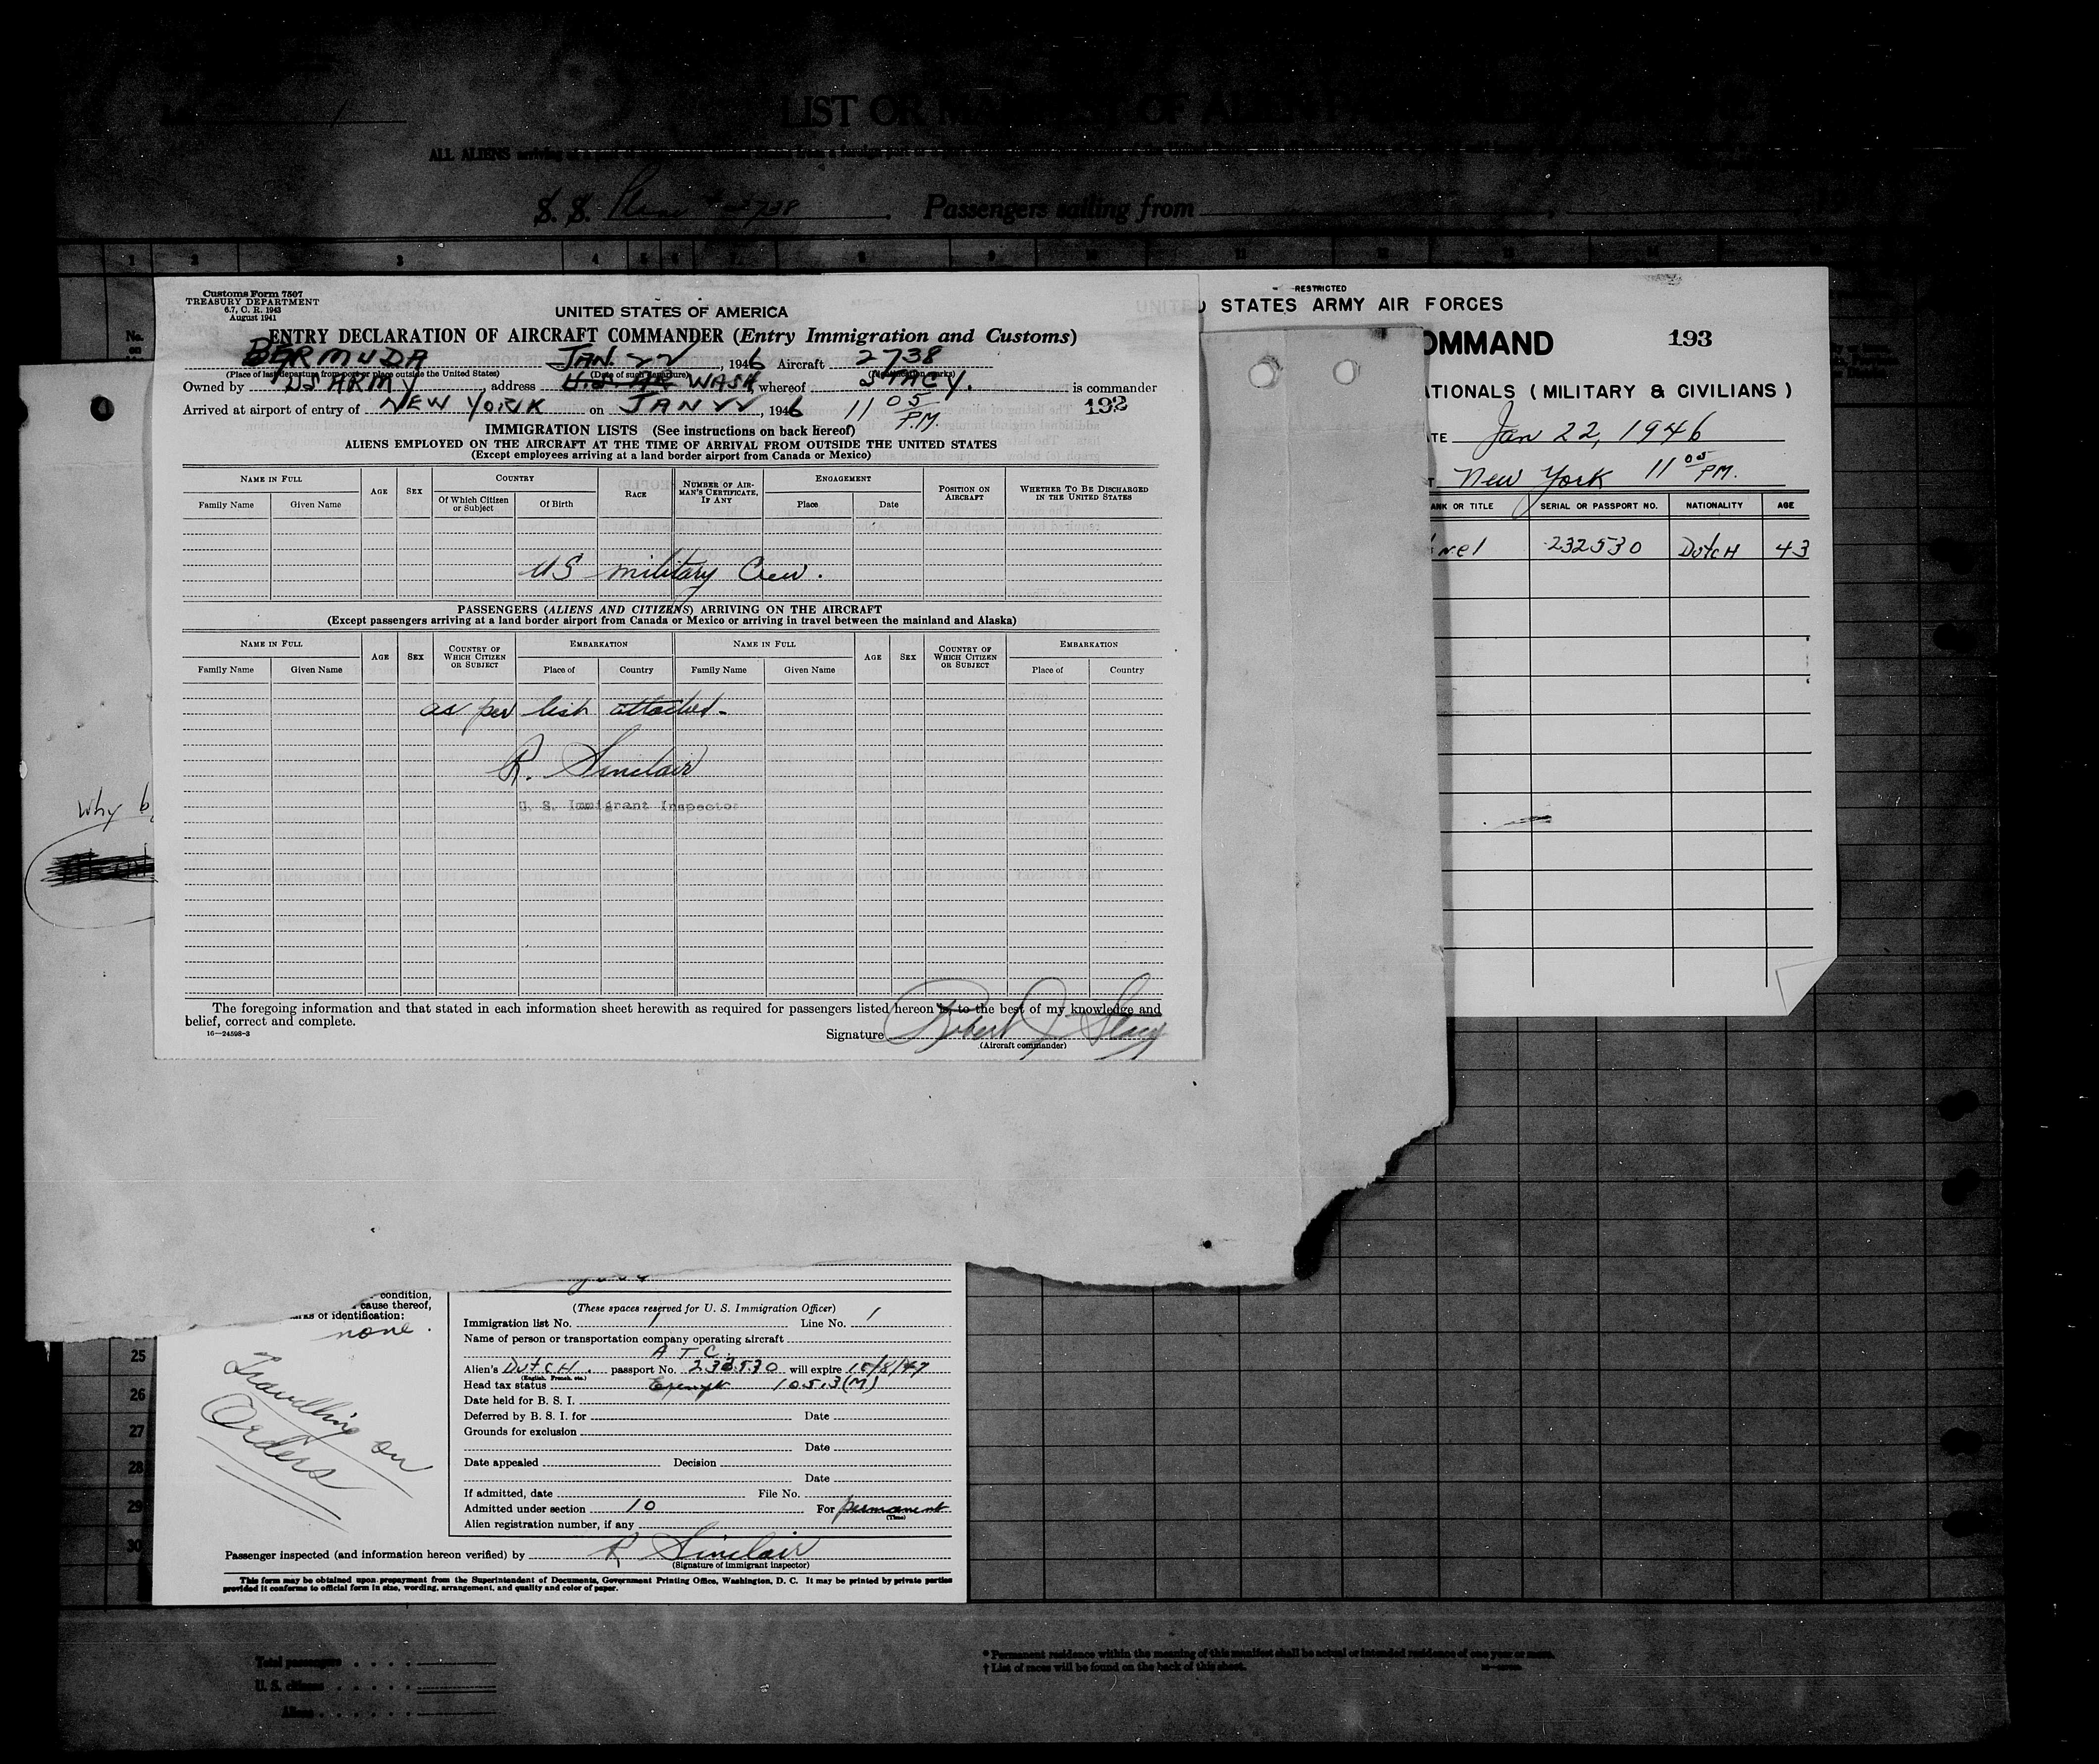 LIST OR MANIFEST OF ALIEN
ALL ALIENS arriving at a port of
S. S. Plane # 2738 Passengers sailing from
1 2 3 4 5 6 7 8 9 10 11 12 13 14
Customs Form 7507
TREASURY DEPARTMENT
6.7, C. R. 1943
August 1941
UNITED STATES OF AMERICA
ENTRY DECLARATION OF AIRCRAFT COMMANDER (Entry Immigration and Customs)
BERMUDA JAN. 22, 1946 Aircraft 2738
(Place of last departure from port or place outside the United States) (Date of such departure) (Identification marks)
Owned by US ARMY, address WASH, whereof STACY. is commander
Arrived at airport of entry of NEW YORK on JAN 22, 1946 11 05 P.M. 192
IMMIGRATION LISTS (See instructions on back hereof)
ALIENS EMPLOYED ON THE AIRCRAFT AT THE TIME OF ARRIVAL FROM OUTSIDE THE UNITED STATES
(Except employees arriving at a land border airport from Canada or Mexico)
NAME IN FULL AGE SEX COUNTRY RACE NUMBER OF AIRMAN'S CERTIFICATE, IF ANY ENGAGEMENT POSITION ON AIRCRAFT WHETHER TO BE DISCHARGED IN THE UNITED STATES
Family Name Given Name Of Which Citizen or Subject Of Birth Place Date
US military Crew.
PASSENGERS (ALIENS AND CITIZENS) ARRIVING ON THE AIRCRAFT
(Except passengers arriving at a land border airport from Canada or Mexico or arriving in travel between the mainland and Alaska)
NAME IN FULL AGE SEX COUNTRY OF WHICH CITIZEN OR SUBJECT EMBARKATION NAME IN FULL AGE SEX COUNTRY OF WHICH CITIZEN OR SUBJECT EMBARKATION
Family Name Given Name Place of Country Family Name Given Name Place of Country
as per list attached.
R. Sinclair
U. S. Immigrant Inspector
The foregoing information and that stated in each information sheet herewith as required for passengers listed hereon is, to the best of my knowledge and
belief, correct and complete.
16—24598-3
Signature Robert J Stacy
(Aircraft commander)
RESTRICTED
STATES ARMY AIR FORCES
OMMAND 193
ATIONALS ( MILITARY & CIVILIANS )
TE Jan 22, 1946
T New York 11 05 P.M.
ANK OR TITLE SERIAL OR PASSPORT NO. NATIONALITY AGE
nel 232530 Dutch 43
Why
condition,
cause thereof,
of identification:
none.
Travelling on
Orders
(These spaces reserved for U. S. Immigration Officer)
Immigration list No. 1 Line No. 1
Name of person or transportation company operating aircraft
A T C.
Alien's Dutch. passport No. 232530 will expire 15/8/47
(English, French, etc.)
Head tax status Exempt 105.3(M)
Date held for B. S. I.
Deferred by B. S. I. for Date
Grounds for exclusion
Date
Date appealed Decision
Date
If admitted, date File No.
Admitted under section 10 For permanent
(Time)
Alien registration number, if any
Passenger inspected (and information hereon verified) by R Sinclair
(Signature of immigrant inspector)
This form may be obtained upon prepayment from the Superintendent of Documents, Government Printing Office, Washington, D. C. It may be printed by private parties
provided it conforms to official form in size, wording, arrangement, and quality and color of paper.
25
26
27
28
29
30
Total passengers
U. S. citizens
Aliens
* Permanent residence within the meaning of this manifest shall be actual or intended residence of one year or more.
† List of races will be found on the back of this sheet.